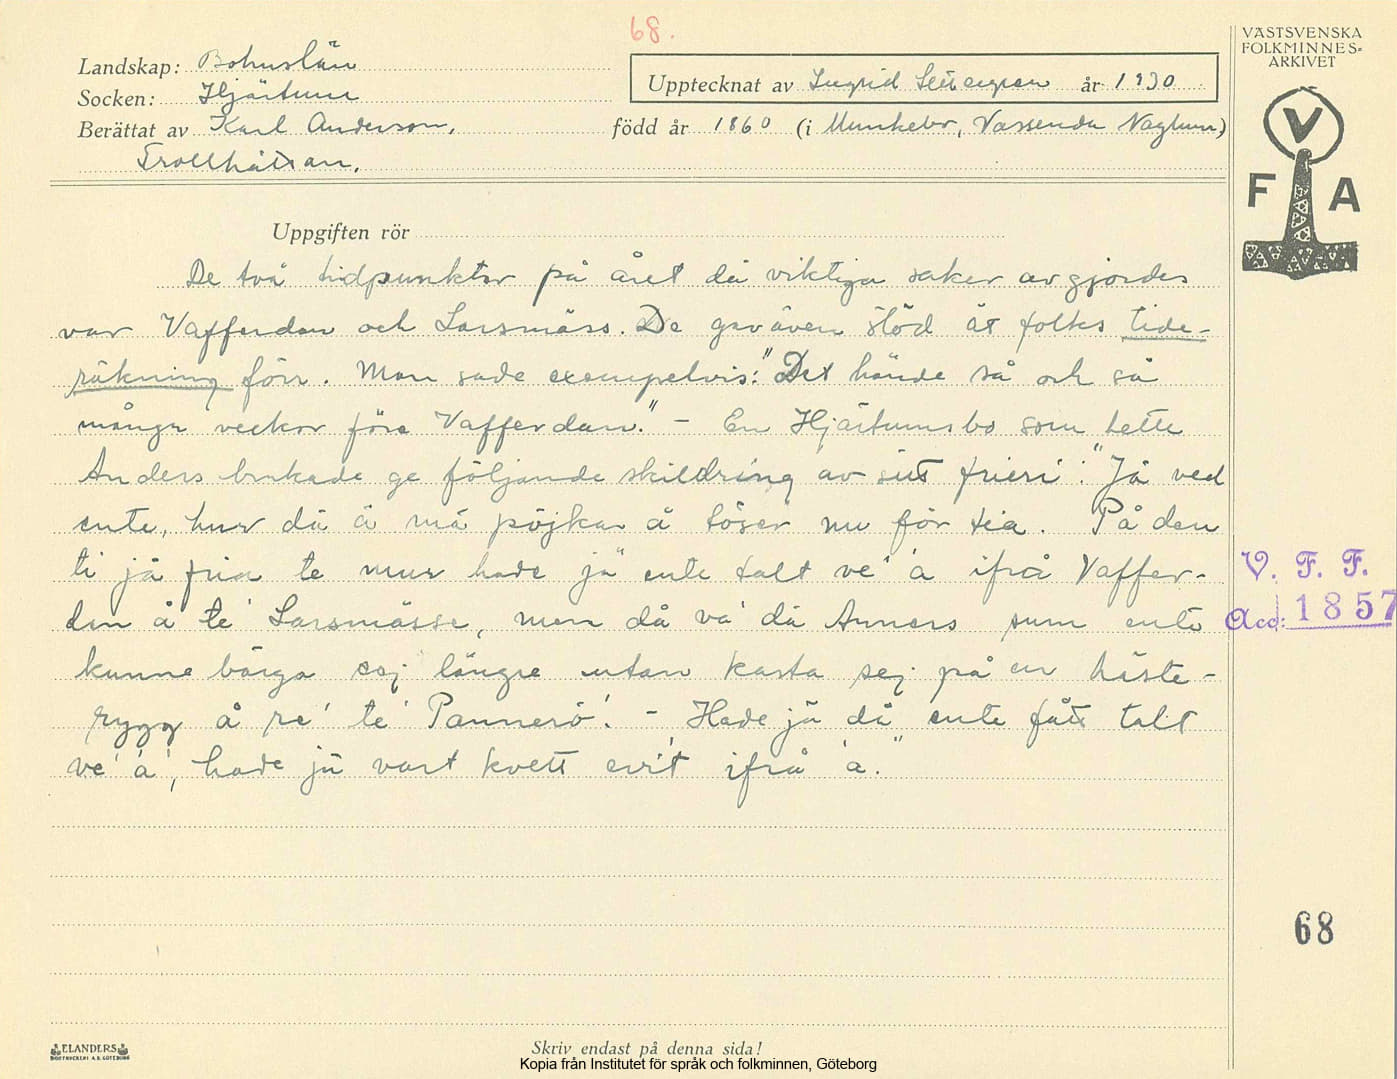 68.
VÄSTSVENSKA
FOLKMINNES-
ARKIVET
Landskap: Bohuslän
Upptecknat av Ingrid år 1930
Socken: Hjärtum
Berättat av Karl Anderson, född år 1860 (i Munkebo, Vassenda Naglum)
Trollhättan.
V
F A
Uppgiften rör
De två tidpunkter på året då viktiga saker avgjordes
var Vafferdan och Larsmäss. De gav även stöd åt folks tide-
räkning förr. Man sade exempelvis: "Det hände så och så
många veckor före Vafferdan." - En Hjärtumsbo som hette
Anders brukade ge följande skildring av sitt frieri: "Jå ved
ente, hur dä ä mä pöjkar å töser nu för tia. På den
ti jå fria te mur hade jä ente talt ve' a ifrå Vaffer-
dan å te' Larsmässe, men då va' dä Anners sum ente
kunne bärga sej längre utan kasta sej på en häste-
rygg å re' te' Pannerö! - Hade jä då ente fått talt
ve' a', hade jä vart kvett evi't ifrå a."
V. F. F.
Acc: 1857
68
ELANDERS
BOKTRYCKERI A.B. GÖTEBORG
Skriv endast på denna sida!
Kopia från Institutet för språk och folkminnen, Göteborg